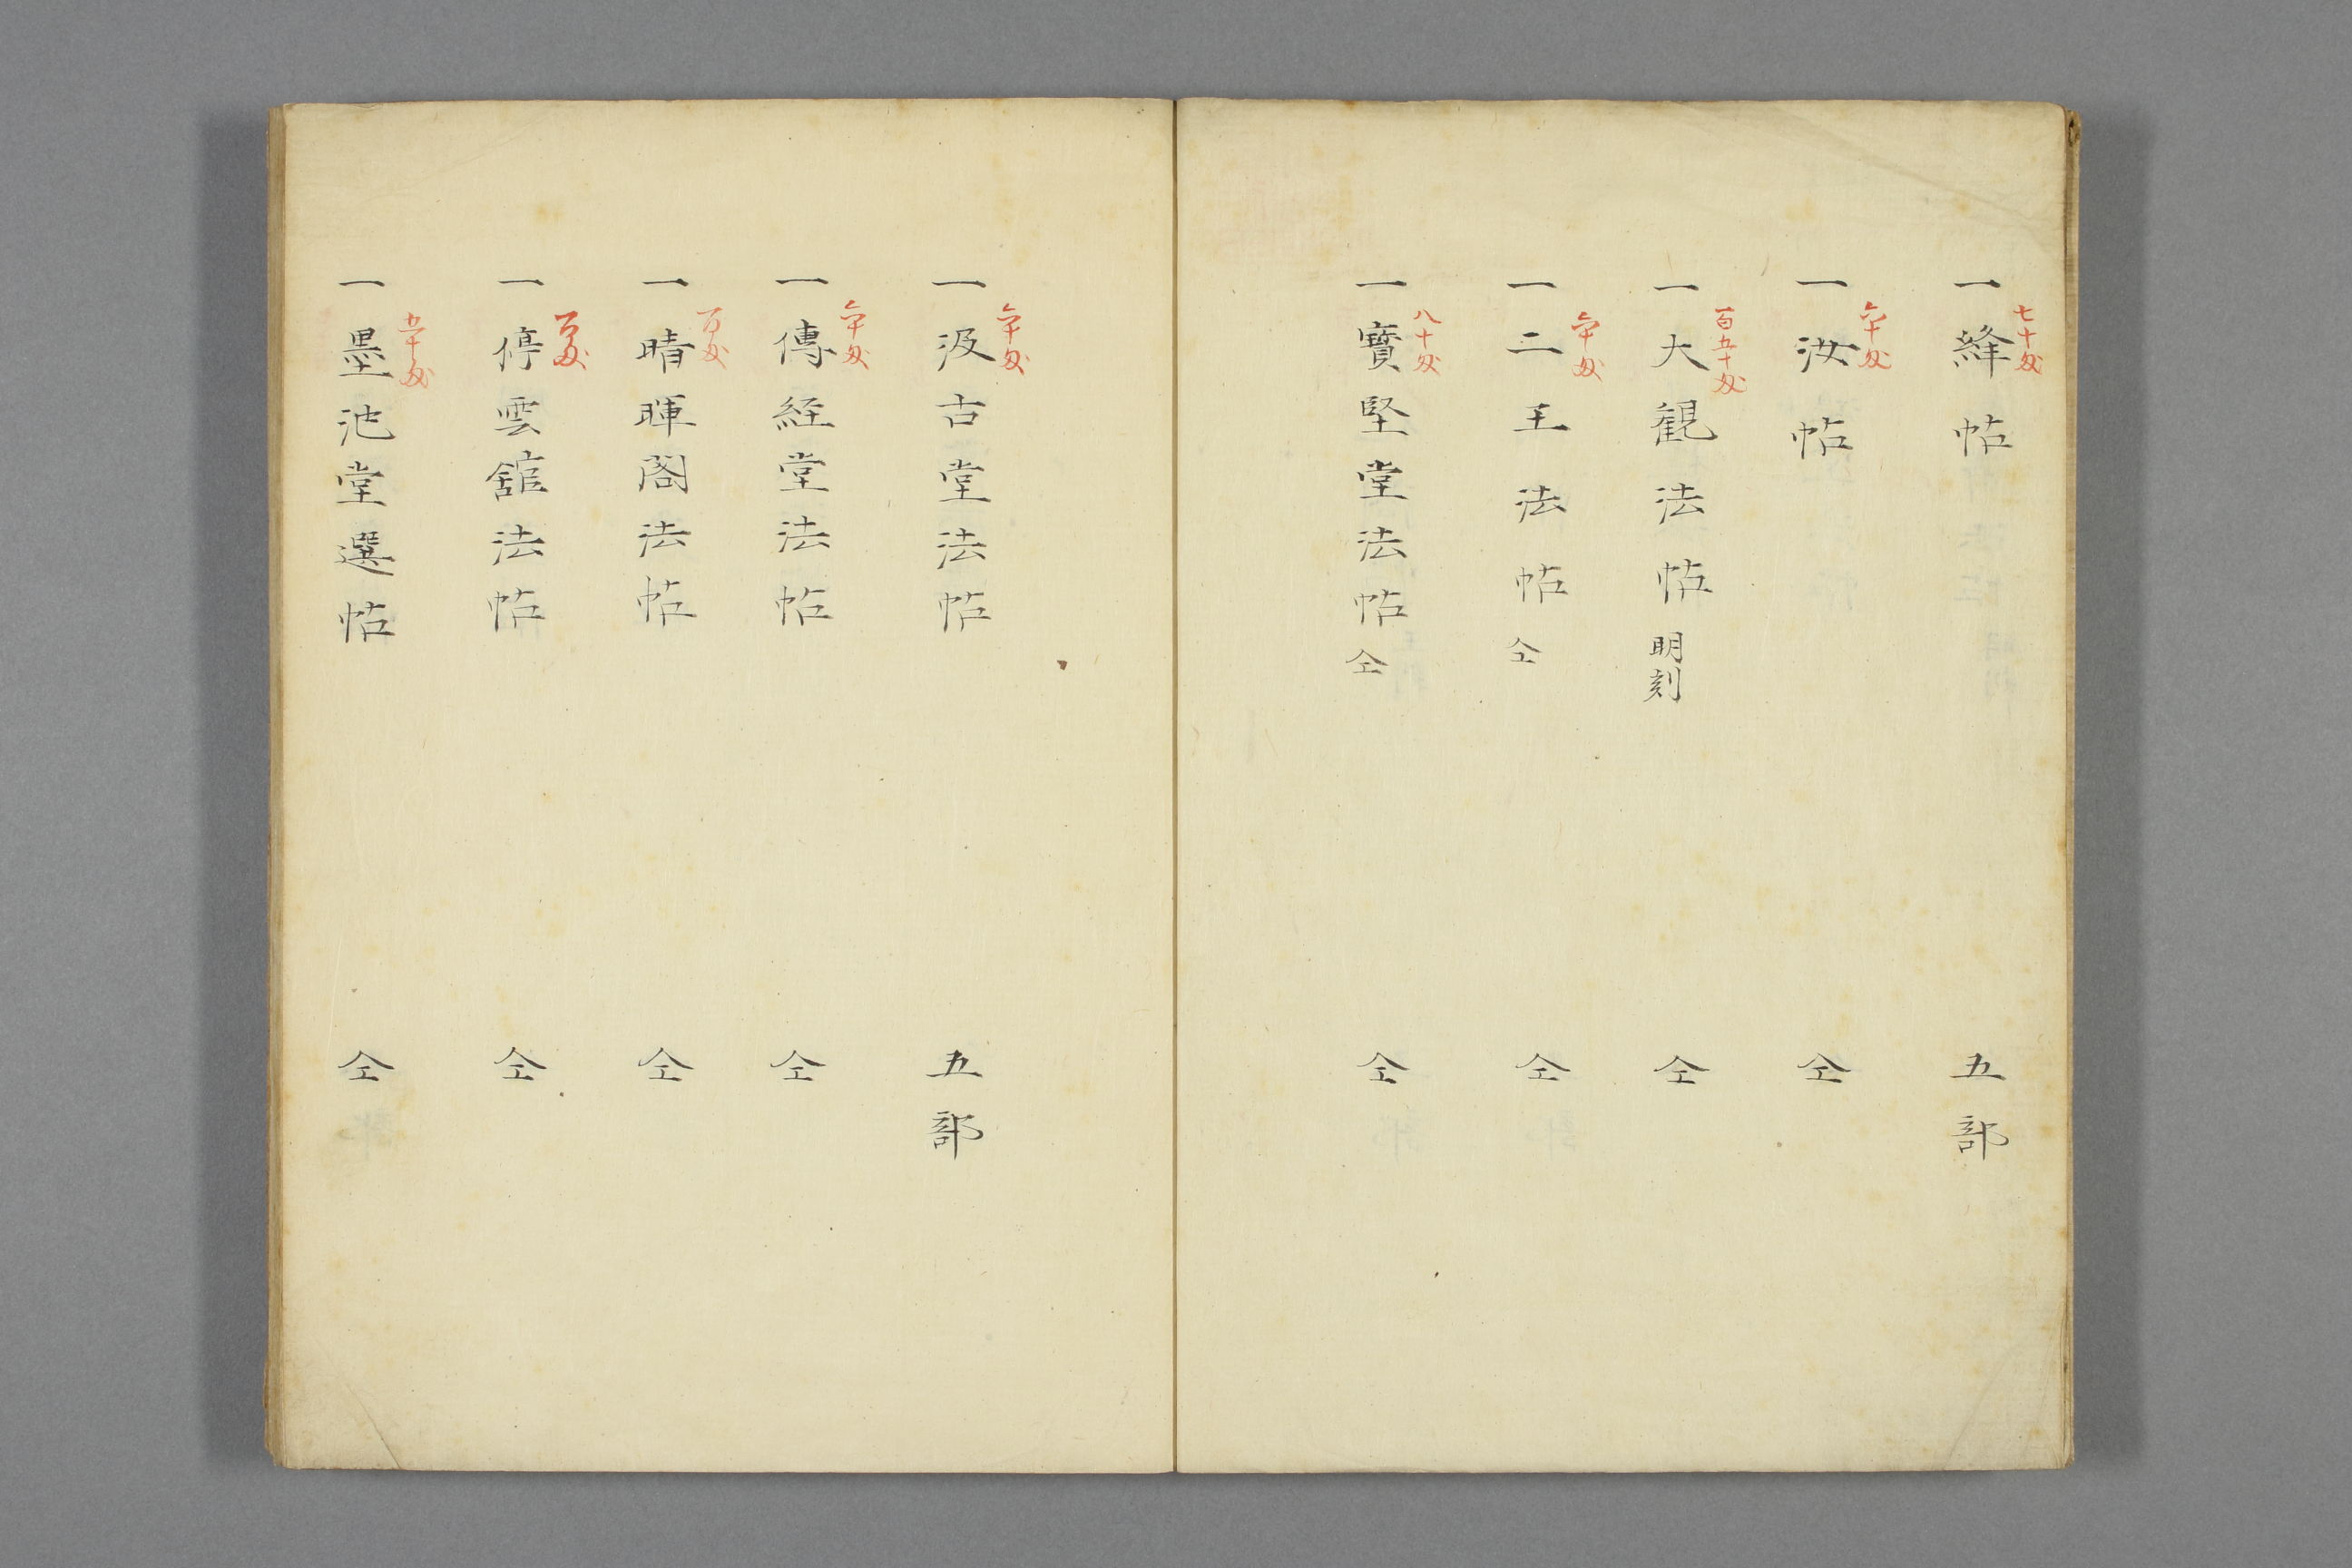 一絳帖 五部
七十匁
一汝帖 仝
六十匁
一大観法帖 明刻 仝
一百五十匁
一二王法帖 仝 仝
六十匁
一寳堅堂法帖 仝 仝
八十匁
一汲古堂法帖 五部
六十匁
一傳経堂法帖 仝
六十匁
一晴暉閣法帖 仝
百匁
一停雲舘法帖 仝
百匁
一墨池堂選帖 仝
五十匁